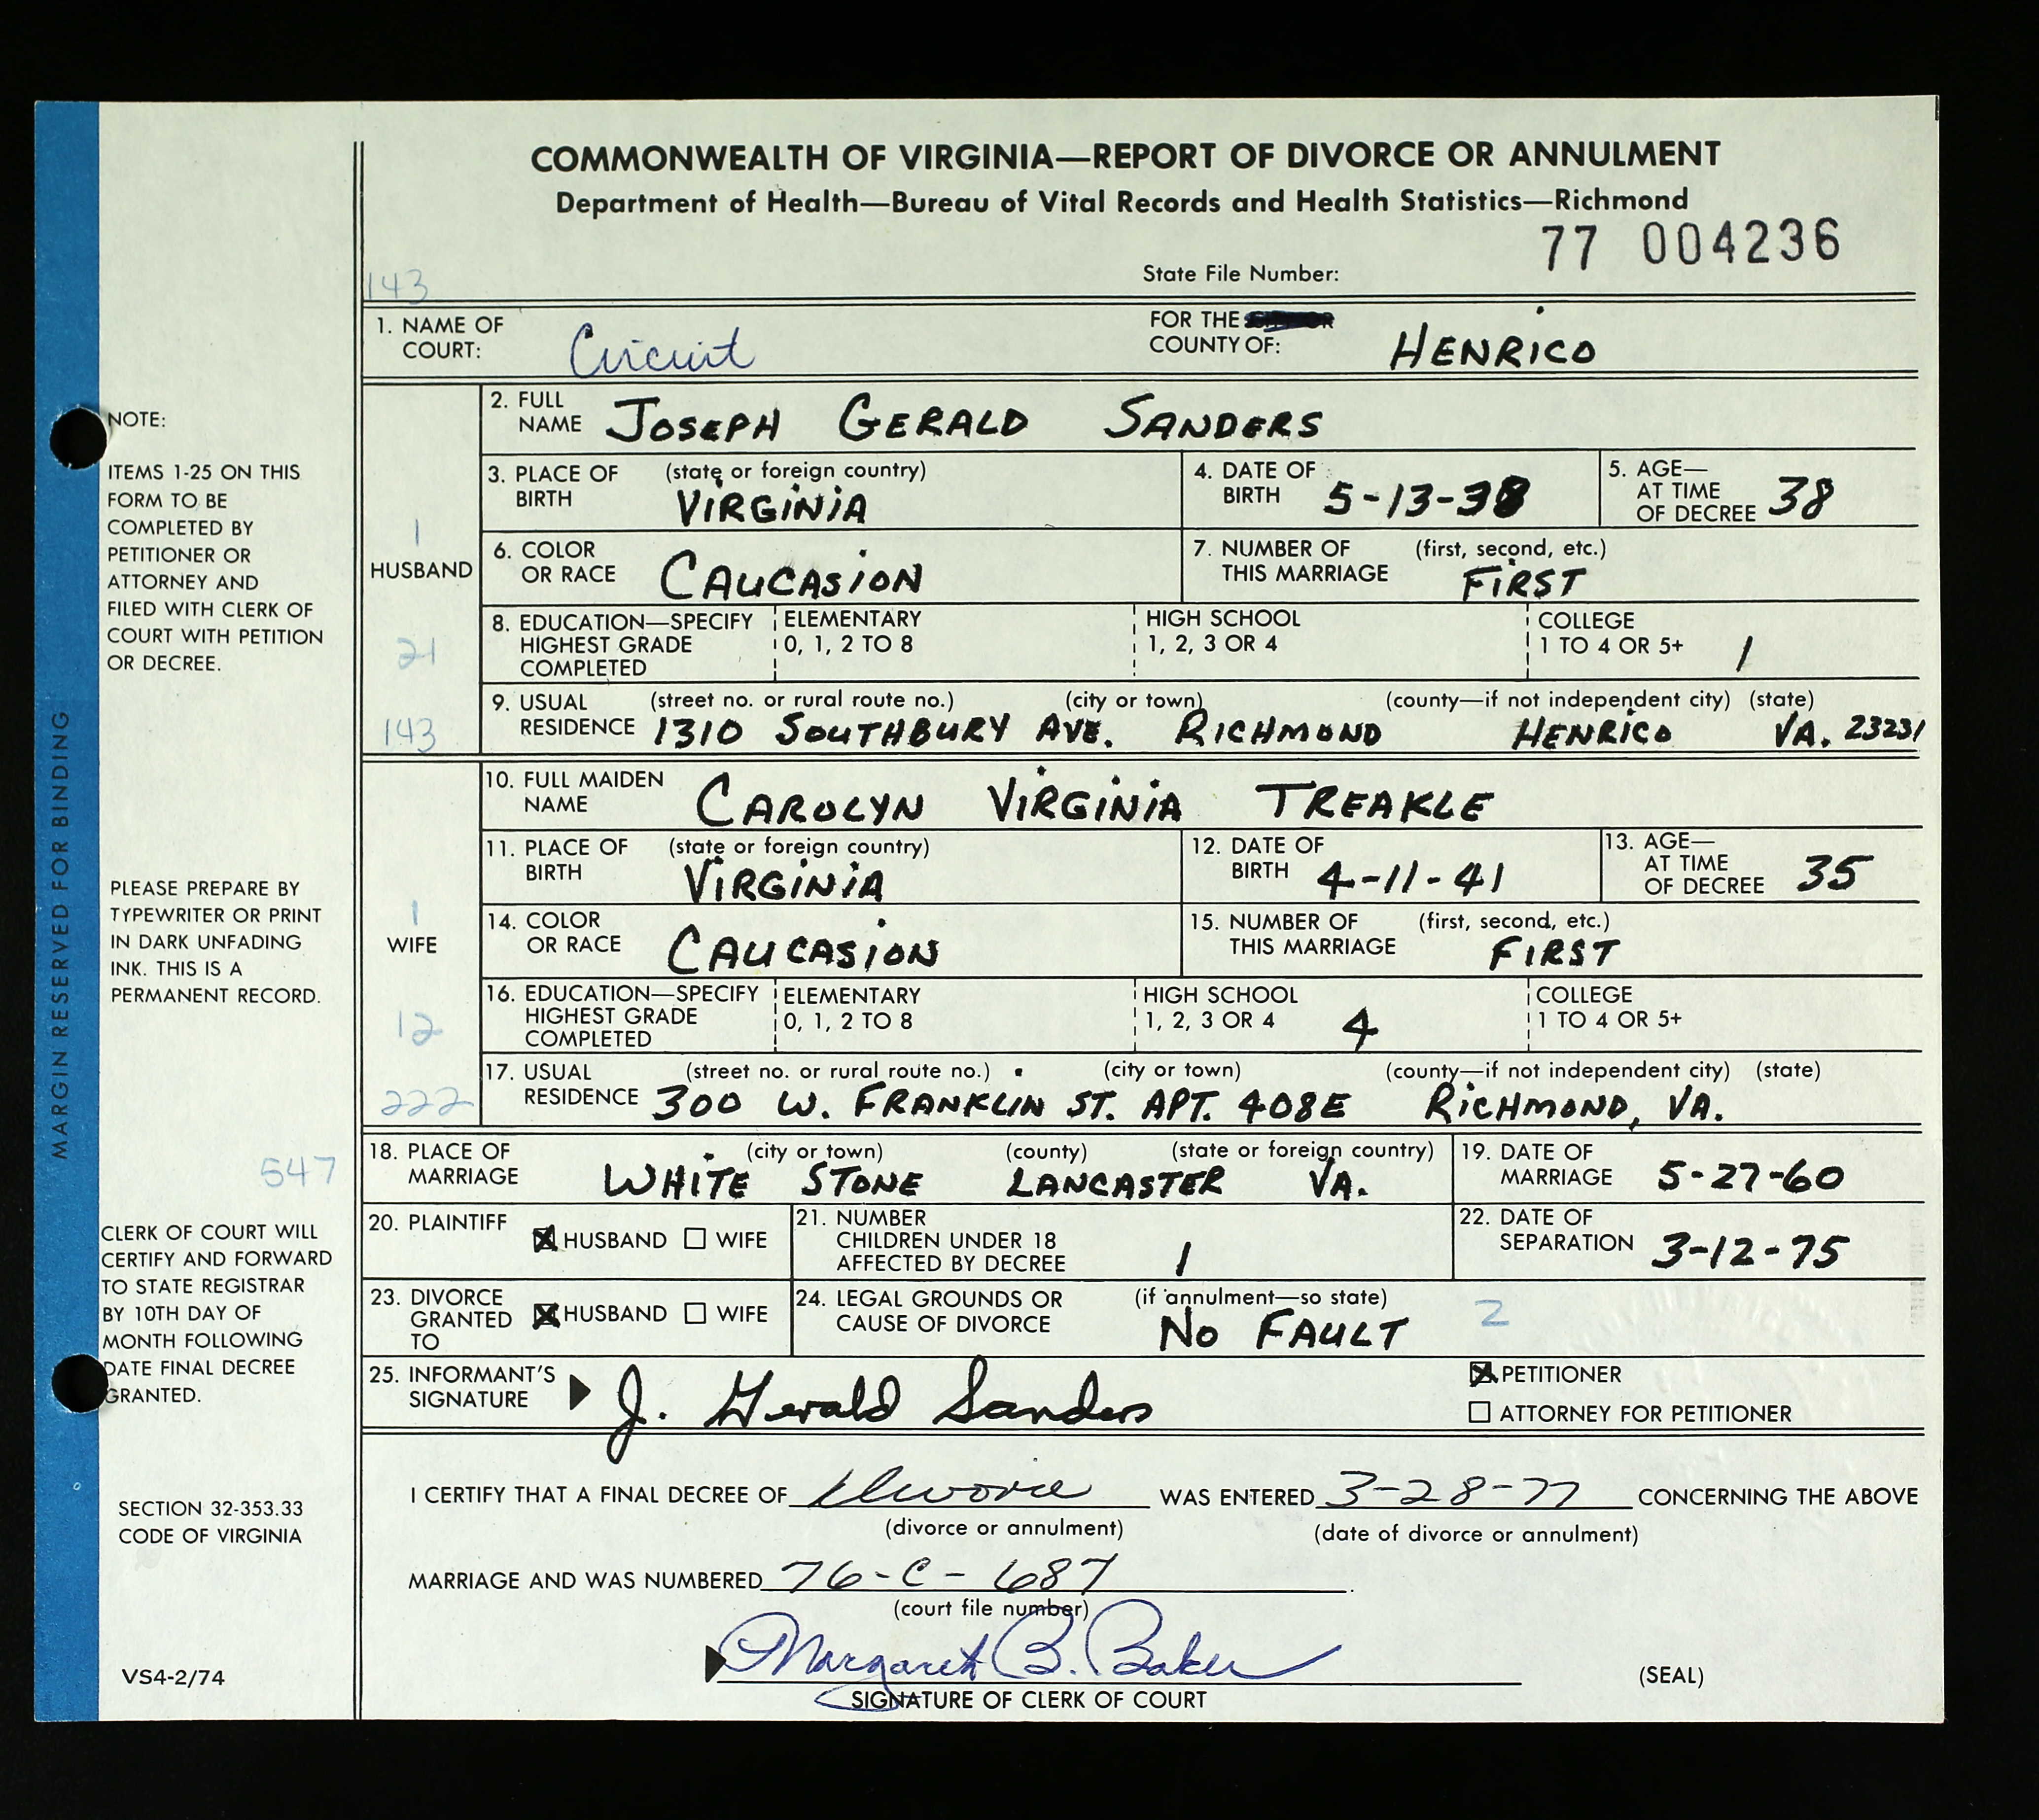 COMMONWEALTH OF VIRGINIA—REPORT OF DIVORCE OR ANNULMENT
Department of Health—Bureau of Vital Records and Health Statistics—Richmond
77 004236
State File Number:
143
1. NAME OF COURT: Circuit FOR THE COUNTY OF: HENRICO
2. FULL NAME JOSEPH GERALD SANDERS
3. PLACE OF BIRTH (state or foreign country) VIRGINIA
4. DATE OF BIRTH 5-13-38
5. AGE—AT TIME OF DECREE 38
1
HUSBAND
6. COLOR OR RACE CAUCASION
7. NUMBER OF THIS MARRIAGE (first, second, etc.) FIRST
8. EDUCATION—SPECIFY HIGHEST GRADE COMPLETED
ELEMENTARY 0, 1, 2 TO 8
HIGH SCHOOL 1, 2, 3 OR 4
COLLEGE 1 TO 4 OR 5+ 1
21
9. USUAL RESIDENCE (street no. or rural route no.) (city or town) (county—if not independent city) (state)
1310 SOUTHBURY AVE. RICHMOND HENRICO VA. 23231
143
10. FULL MAIDEN NAME CAROLYN VIRGINIA TREAKLE
11. PLACE OF BIRTH (state or foreign country) VIRGINIA
12. DATE OF BIRTH 4-11-41
13. AGE—AT TIME OF DECREE 35
1
WIFE
14. COLOR OR RACE CAUCASION
15. NUMBER OF THIS MARRIAGE (first, second, etc.) FIRST
16. EDUCATION—SPECIFY HIGHEST GRADE COMPLETED
ELEMENTARY 0, 1, 2 TO 8
HIGH SCHOOL 1, 2, 3 OR 4 4
COLLEGE 1 TO 4 OR 5+
12
17. USUAL RESIDENCE (street no. or rural route no.) (city or town) (county—if not independent city) (state)
300 W. FRANKLIN ST. APT. 408E RICHMOND, VA.
222
18. PLACE OF MARRIAGE (city or town) (county) (state or foreign country)
WHITE STONE LANCASTER VA.
19. DATE OF MARRIAGE 5-27-60
547
20. PLAINTIFF HUSBAND WIFE
21. NUMBER CHILDREN UNDER 18 AFFECTED BY DECREE 1
22. DATE OF SEPARATION 3-12-75
23. DIVORCE GRANTED TO HUSBAND WIFE
24. LEGAL GROUNDS OR CAUSE OF DIVORCE (if annulment—so state) NO FAULT 2
25. INFORMANT'S SIGNATURE J. Gerald Sanders
PETITIONER
ATTORNEY FOR PETITIONER
I CERTIFY THAT A FINAL DECREE OF Divorce WAS ENTERED 3-28-77 CONCERNING THE ABOVE
(divorce or annulment) (date of divorce or annulment)
MARRIAGE AND WAS NUMBERED 76-C-687.
(court file number)
Margaret B. Baker
SIGNATURE OF CLERK OF COURT
(SEAL)
NOTE:
ITEMS 1-25 ON THIS
FORM TO BE
COMPLETED BY
PETITIONER OR
ATTORNEY AND
FILED WITH CLERK OF
COURT WITH PETITION
OR DECREE.
PLEASE PREPARE BY
TYPEWRITER OR PRINT
IN DARK UNFADING
INK. THIS IS A
PERMANENT RECORD.
CLERK OF COURT WILL
CERTIFY AND FORWARD
TO STATE REGISTRAR
BY 10TH DAY OF
MONTH FOLLOWING
DATE FINAL DECREE
GRANTED.
SECTION 32-353.33
CODE OF VIRGINIA
VS4-2/74
MARGIN RESERVED FOR BINDING